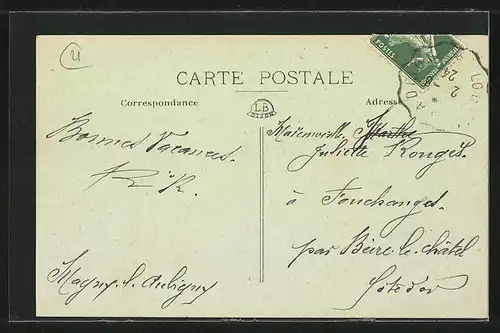 CARTE POSTALE
Correspondance
LB
DIJON
Adresse
POSTES
Bonnes Vacances.
R. R.
Magny-s-Aubigny
Mademoiselle Marthe
Juliette Rouget.
à Fouchanges
par Beire-le-châtel
Côte d'or